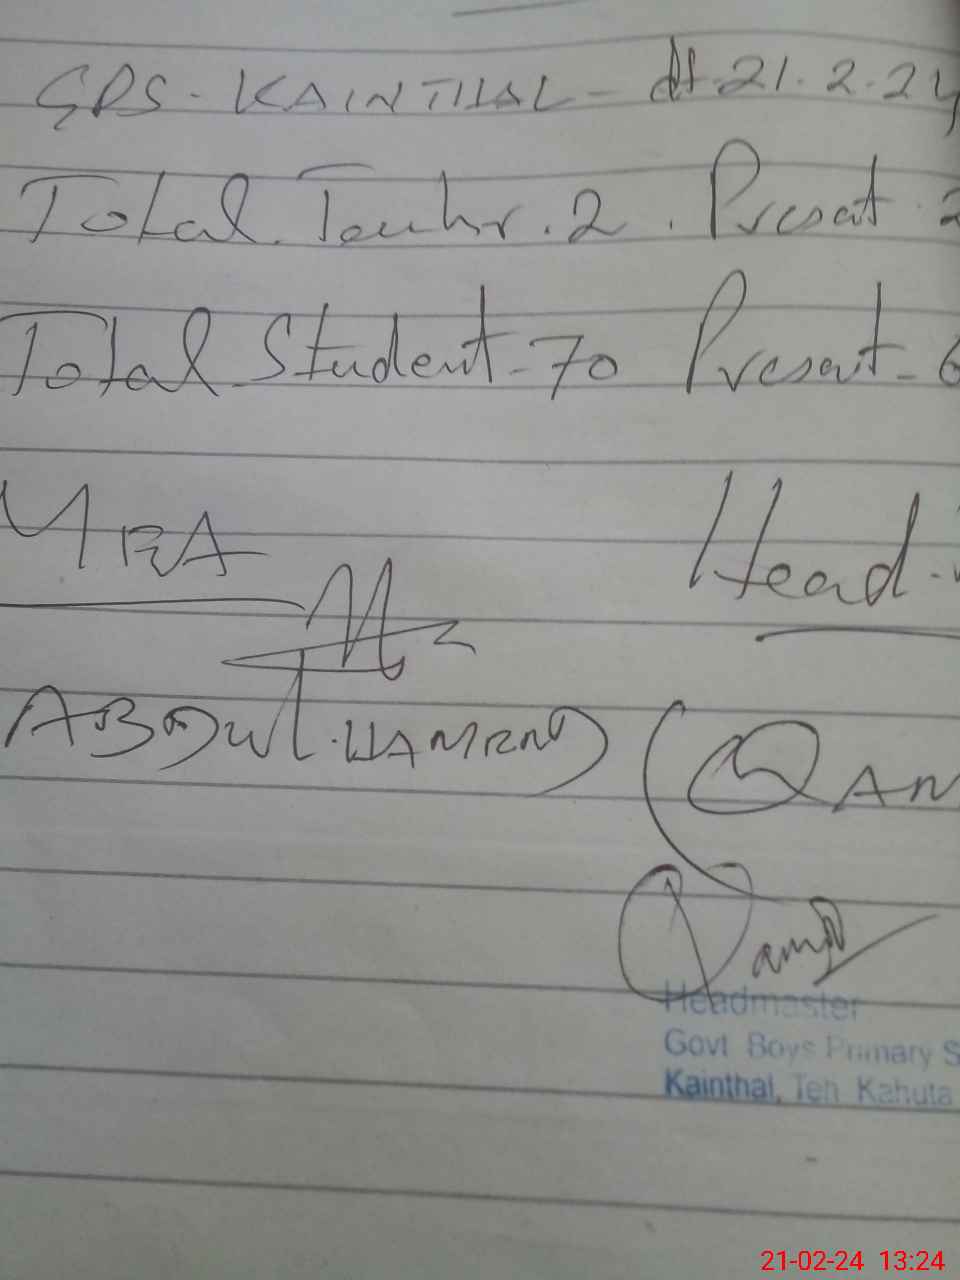 GPS - KAINTHAL - dt. 21.2.24
Total Teachr. 2. Present. 2
Total Student - 70 Present - 6
MEA
Head.
ABDUL HAMEED
(QAM
Headmaster
Govt Boys Primary S
Kainthal, Teh Kahuta
21-02-24 13:24